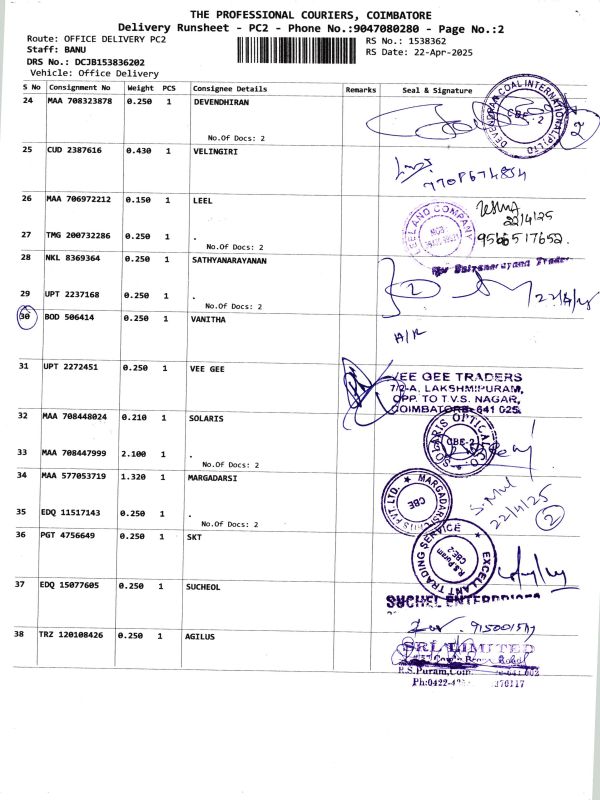 THE PROFESSIONAL COURIERS, COIMBATORE
Delivery Runsheet - PC2 - Phone No.:9047080280 - Page No.:2
Route: OFFICE DELIVERY PC2
RS No.: 1538362
Staff: BANU
RS Date: 22-Apr-2025
DRS No.: DCJB153836202
Vehicle: Office Delivery
S No Consignment No Weight PCS Consignee Details Remarks Seal & Signature
24 MAA 708323878 0.250 1 DEVENDHIRAN
No.Of Docs: 2
DEVENDRAN COAL INTERNATIONAL (P) LTD
CBE - 2
2
25 CUD 2387616 0.430 1 VELINGIRI
26 MAA 706972212 0.150 1 LEEL
LEELAND COMPANY
22/4/25
9566517652.
27 TMG 200732286 0.250 1 .
No.Of Docs: 2
28 NKL 8369364 0.250 1 SATHYANARAYANAN
2
22/4/25
29 UPT 2237168 0.250 1 .
No.Of Docs: 2
30 BOD 506414 0.250 1 VANITHA
31 UPT 2272451 0.250 1 VEE GEE
VEE GEE TRADERS
7/2-A, LAKSHMIPURAM,
OPP. TO T.V.S. NAGAR,
COIMBATORE- 641 025.
32 MAA 708448024 0.210 1 SOLARIS
SOLARIS OPTICAL CO
CBE-2
33 MAA 708447999 2.100 1 .
No.Of Docs: 2
34 MAA 577053719 1.320 1 MARGADARSI
MARGADARSI CHITS PVT. LTD.
CBE
22/4/25
2
35 EDQ 11517143 0.250 1 .
No.Of Docs: 2
36 PGT 4756649 0.250 1 SKT
EXCELLANT TRADING SERVICE
R.S Puram
CBE-2
37 EDQ 15077605 0.250 1 SUCHEOL
SUCHEL ENTERPRISES
38 TRZ 120108426 0.250 1 AGILUS
SRL LIMITED
R.S.Puram,Coim
Ph:0422-4